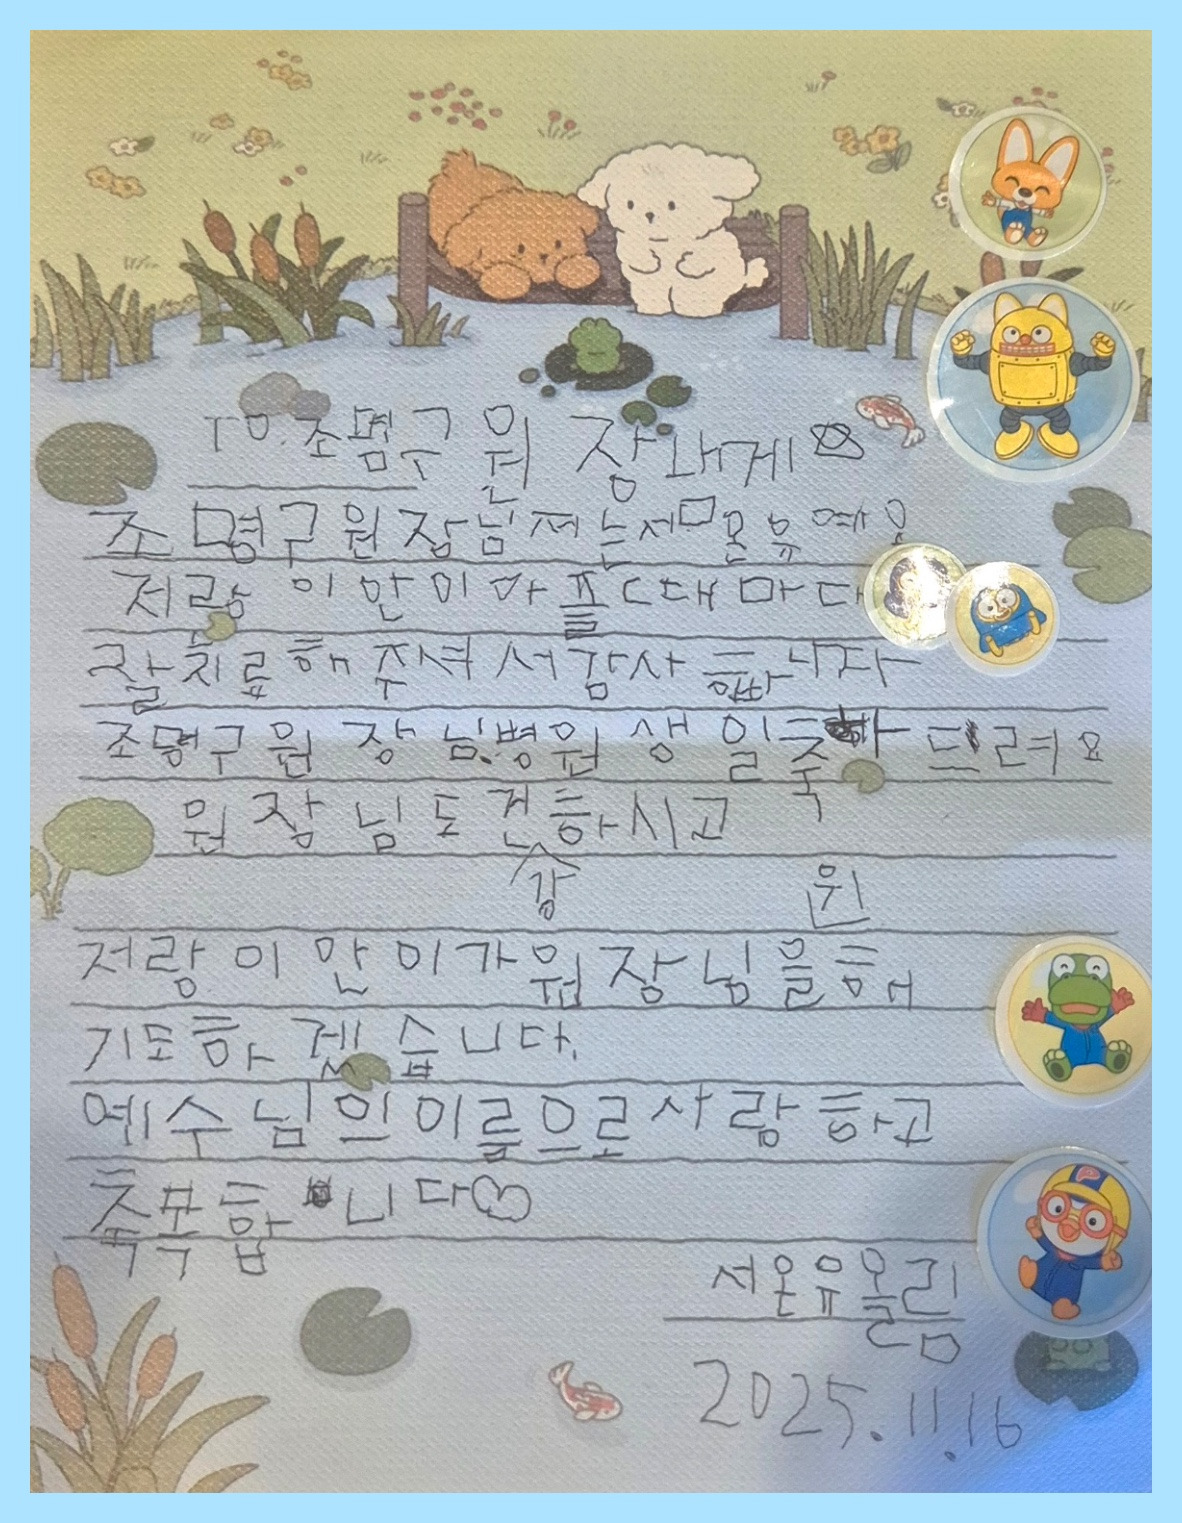 To. 조명구 원장님께
조명구원장님 저는 서온유예요
저랑 이안이 아플 때 마다
잘 치료해주셔서 감사합니다
조명구원장님 병원 생일축하 드려요
원장님도 건하시고
강
원
저랑 이안이가 원장님을 해
기도하겠습니다.
예수님의 이름으로 사랑하고
축복합니다♡
서온유 올림
2025.11.16